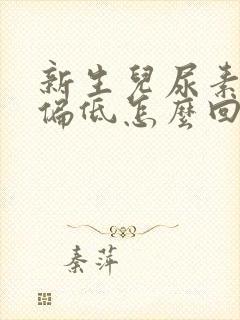 新生兒尿素
偏低怎麼回
秦萍